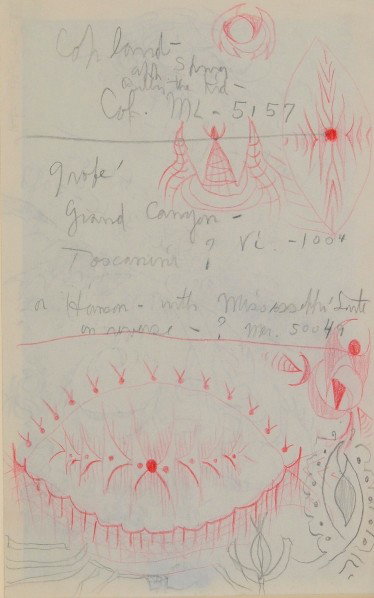 Copland -
app. Spring
Billy the Kid -
Col. ML - 5157
grofé
Grand Canyon -
Toscanini ? Vi. - 1004
or Hanson - with Mississippi Suite
on reverse - ? Mer. 50049